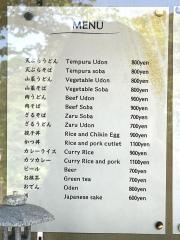 MENU
天ぷらうどん Tempura Udon 800yen
天ぷらそば Tempura soba 800yen
山菜うどん Vegetable Udon 800yen
山菜そば Vegetable Soba 800yen
肉うどん Beef Udon 900yen
肉そば Beef Soba 900yen
ざるそば Zaru Soba 700yen
ざるうどん Zaru Udon 700yen
親子丼 Rice and Chikin Egg 900yen
かつ丼 Rice and pork cutlet 1100yen
カレーライス Curry Rice 900yen
カツカレー Curry Rice and pork 1100yen
ビール Beer 700yen
お抹茶 Green tea 700yen
おでん Oden 800yen
Japanese sake 600yen